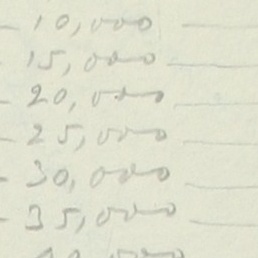 10,000
15,000
20,000
25,000
30,000
35,000